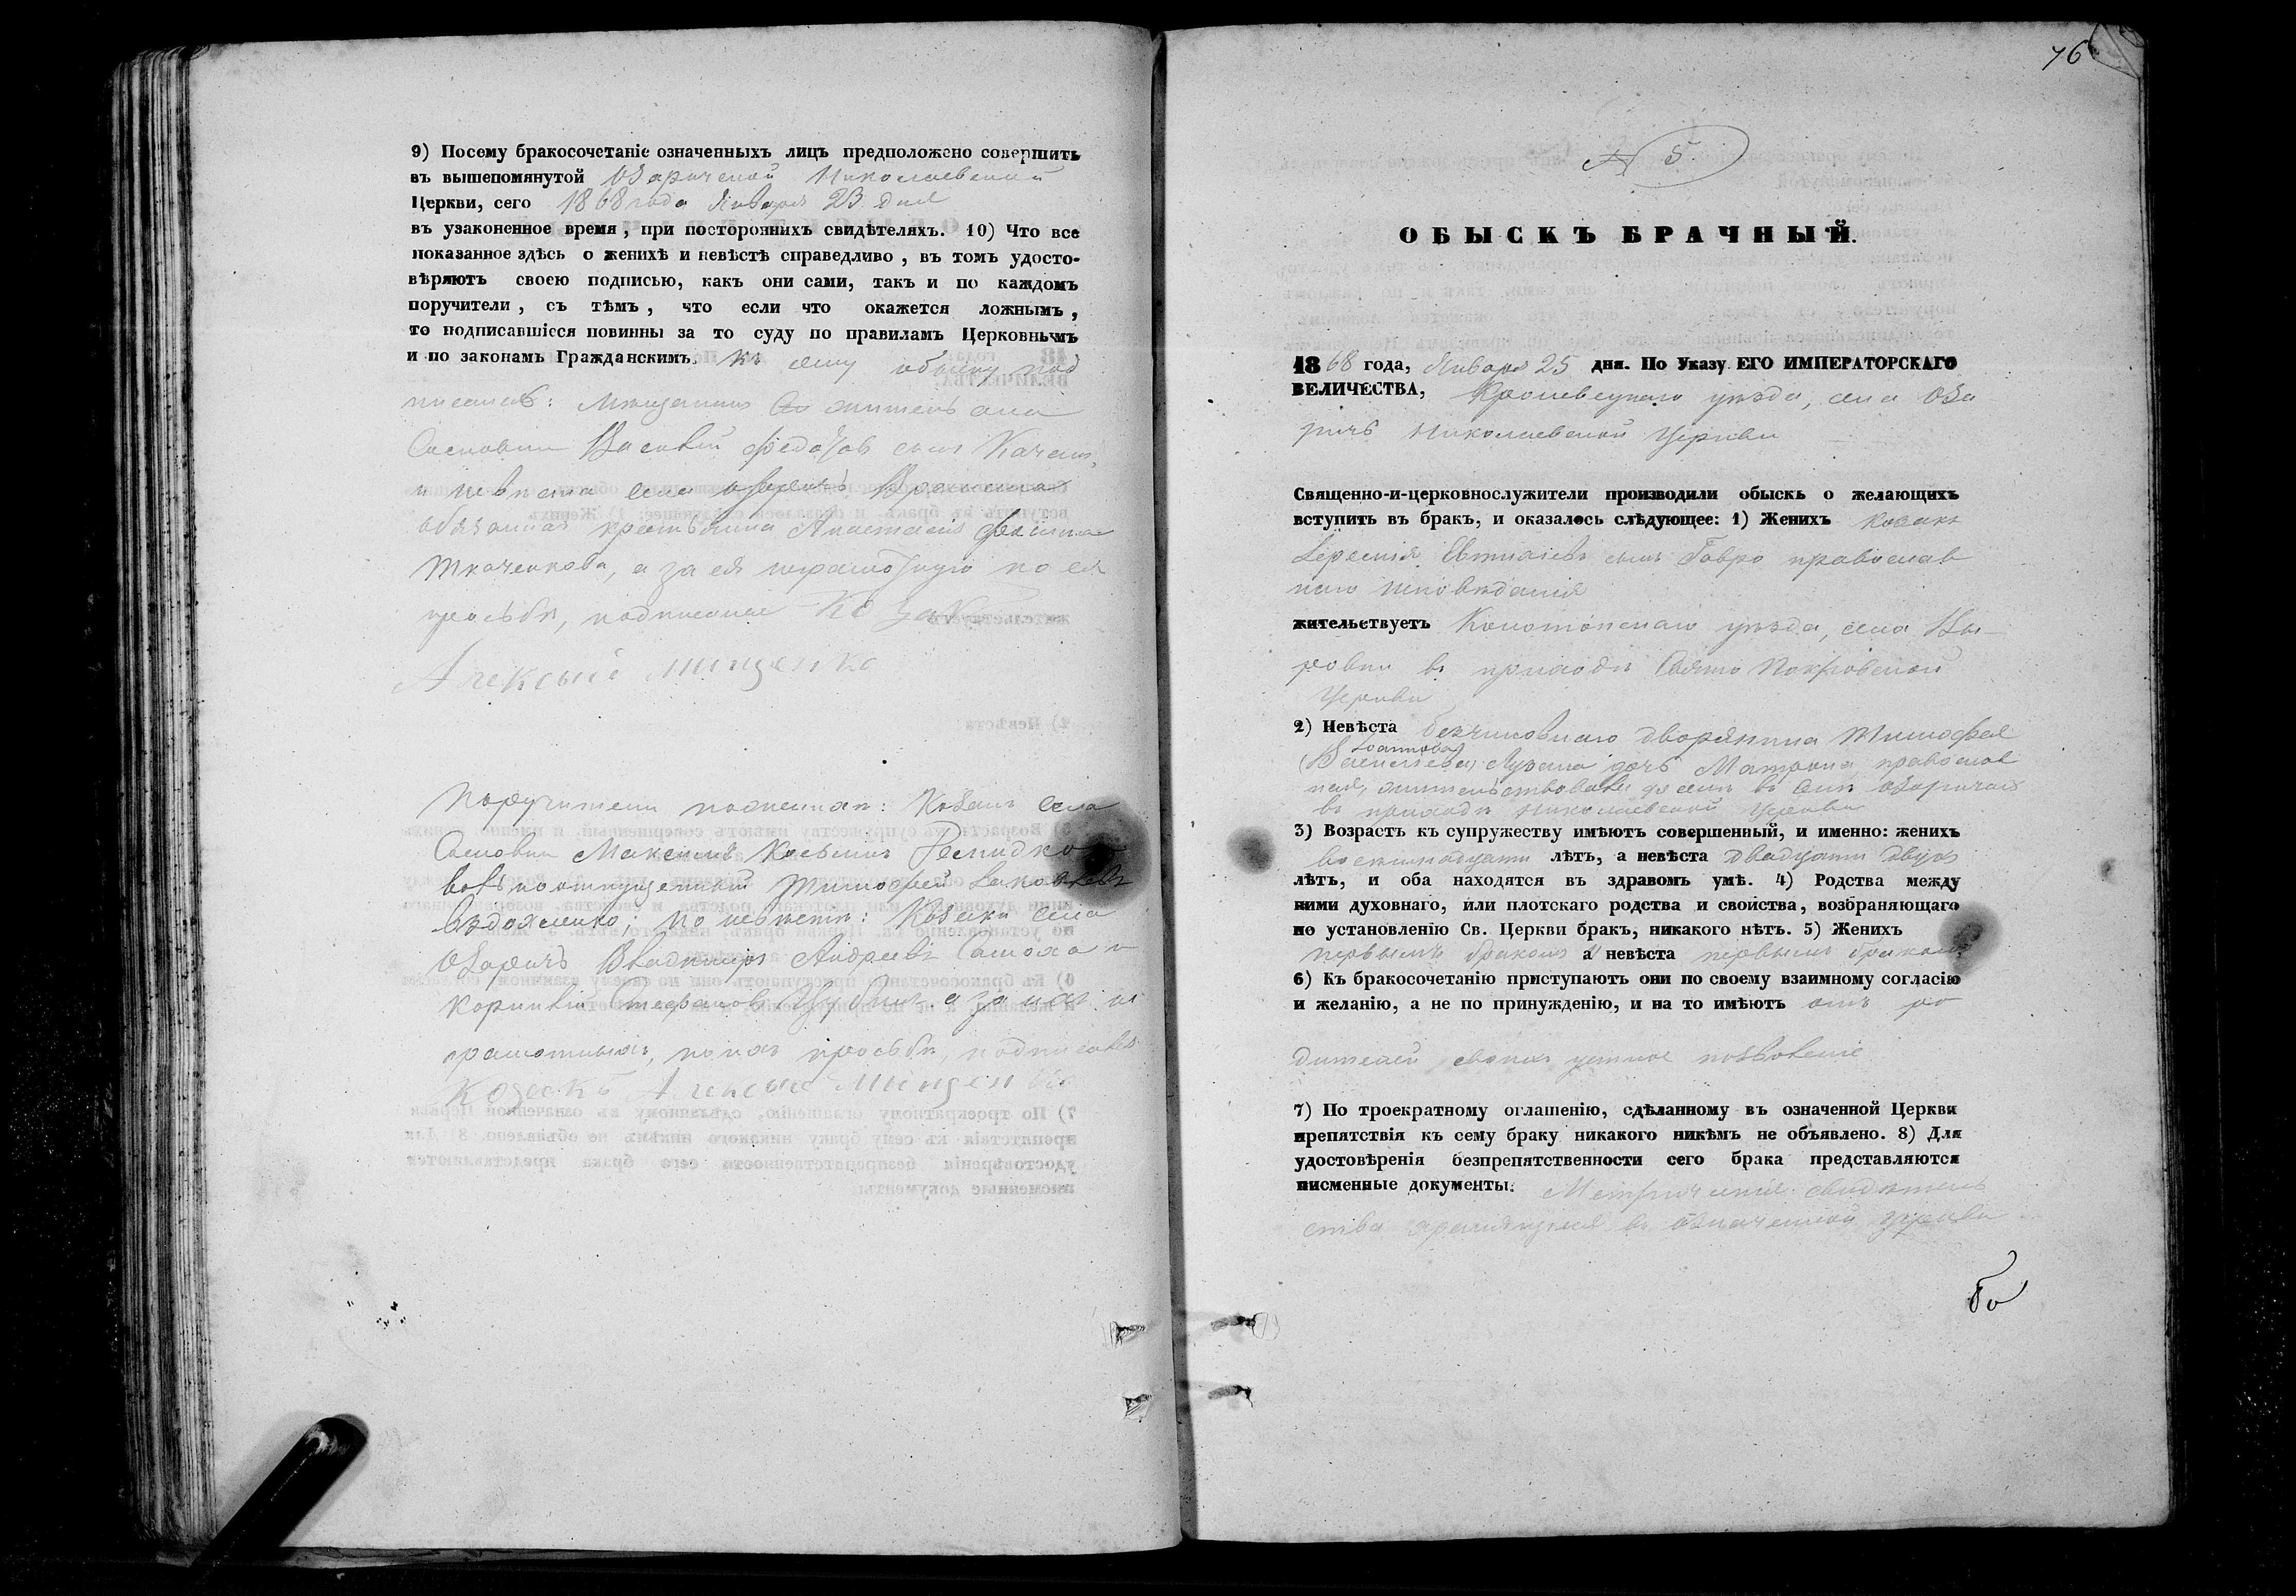 9) Посему бракосочетаніе означенныхъ лицъ предположено совершить
въ вышепомянутой Озарической Николаевской
Церкви, сего 1868 года Января 23 дня
въ узаконенное время, при постороннихъ свидѣтеляхъ. 10) Что все
показанное здѣсь о женихѣ и невѣстѣ справедливо, въ томъ удосто-
вѣряютъ своею подписью, какъ они сами, такъ и по каждомъ
поручители, съ тѣмъ, что если что окажется ложнымъ,
то подписавшіеся повинны за то суду по правиламъ Церковнымъ
и по законамъ Гражданскимъ. Къ сему обыску под
писалсь: житель села
Сосновки Василій Федоровъ сынъ
и невѣста села Озаричъ
обязанная крестьянка Анастасія
Ткаченкова, а за ея неграмотную по ея
просьбѣ, подписался Козакъ
Алексѣй Мищенко
Поручители по женихѣ: Козакъ села
Сосновки Максимъ Косьминъ
вольноотпущенный Тимофей
Евдохменко; по невѣстѣ: Козаки села
Озаричъ Владимиръ Андреевъ Самоха и
Корнилій Стефановъ а за ихъ не
грамотныхъ, по ихъ просьбѣ, подписался
Козакъ Алексѣй Мищенко
76
№ 5.
ОБЫСКЪ БРАЧНЫЙ.
1868 года, Января 25 дня. По Указу ЕГО ИМПЕРАТОРСКАГО
ВЕЛИЧЕСТВА, Кролевецкаго уѣзда, села Оза
ричъ Николаевской Церкви
Священно-и-церковнослужители производили обыскъ о желающихъ
вступить въ бракъ, и оказалось слѣдующее: 1) Женихъ Козакъ
Еремія Евтихіевъ сынъ Гавро православ
наго исповѣданія
жительствуетъ Конотопскаго уѣзда, села Вы-
ровки въ приходѣ Свято Покровской
Церкви
2) Невѣста безчиновнаго дворянина Тимофея
Іоаннова
(Васильева) дочь Матрона, православ
ная, жительствовала до селѣ въ селѣ Озаричахъ
въ приходѣ Николаевской Церкви
3) Возрастъ къ супружеству имѣютъ совершенный, и именно: женихъ
восемнадцати лѣтъ, а невѣста двадцати двухъ
лѣтъ, и оба находятся въ здравомъ умѣ. 4) Родства между
ними духовнаго, или плотскаго родства и свойства, возбраняющаго
по установленію Св. Церкви бракъ, никакого нѣтъ. 5) Женихъ
первымъ бракомъ а невѣста первымъ бракомъ
6) Къ бракосочетанію приступаютъ они по своему взаимному согласію
и желанію, а не по принужденію, и на то имѣютъ отъ ро
дителей своихъ устное позволеніе
7) По троекратному оглашенію, сдѣланному въ означенной Церкви
препятствія къ сему браку никакого никѣмъ не объявлено. 8) Для
удостовѣренія безпрепятственности сего брака представляются
писменные документы: Метрическія свидѣтель
ства хранящіяся въ означенной церкви